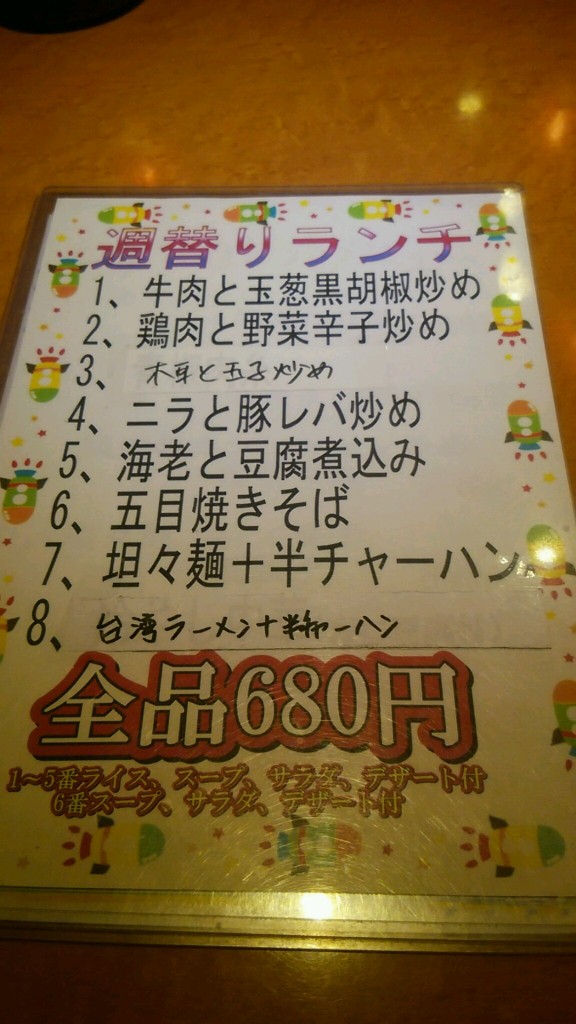 週替りランチ
1、牛肉と玉葱黒胡椒炒め
2、鶏肉と野菜辛子炒め
3、木耳と玉子炒め
4、ニラと豚レバ炒め
5、海老と豆腐煮込み
6、五目焼きそば
7、坦々麺＋半チャーハン
8、台湾ラーメン＋半チャーハン
全品680円
1～5番ライス、スープ、サラダ、デザート付
6番スープ、サラダ、デザート付